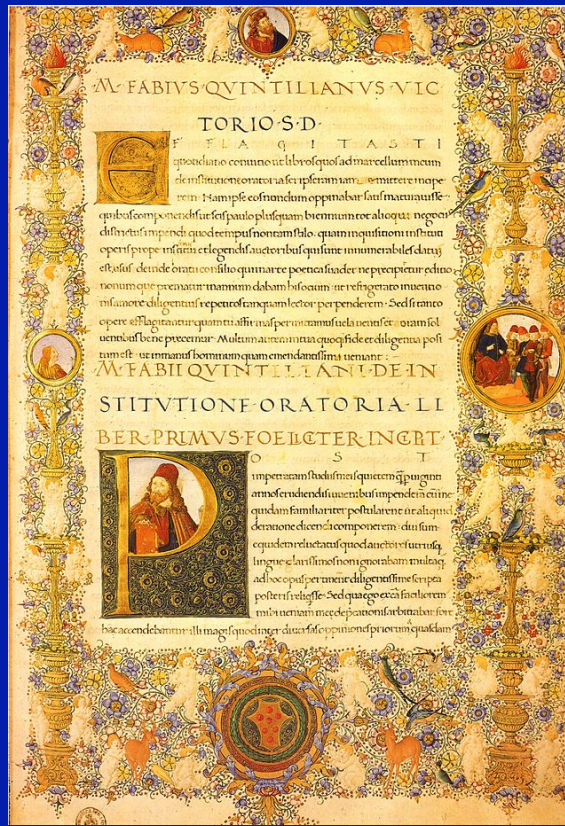 M·FABIVS·QVINTILIANVS·VIC
TORIO·S·D·
EFFLAGITASTI
quotidiano conuitio ut libros quos ad marcellum meum
de institutione oratoria scripseram iam emittere inope
rem Nam ipse eos nondum oppinabar satis maturuisse
quibus componendis ut scis paulo plusquam biennium tot alioqui negociis
districtus impendi quod tempus non tam stilo quam inquisitioni instituti
operis prope infiniti et legendis auctoribus qui sunt innumerabiles datum
est usus deinde oratii consilio qui in arte poetica suadet ne precipitetur editio
nonumque prematur in annum dabam his ocium ut refrigerato inuentio
nis amore diligentius repetitos tanquam lector perpenderem Sed si tanto
opere efflagitantur quam tu affirmas permittamus uela uentis et oram sol
uentibus bene precemur Multum autem in tua quoque fide et diligentia posi
tum est ut in manus hominum quam emendatissimi ueniant
M·FABII QVINTILIANI·DE·IN
STITVTIONE·ORATORIA·LI
BER·PRIMVS·FOELICITER·INCIPIT·
POST
impetratam studiis meis quietem quae per uiginti
annos erudiendis iuuenibus impenderam cum me
quidam familiariter postularent ut aliquid
de ratione dicendi componerem diu sum
equidem reluctatus quod auctores utriusque
lingue clarissimos non ignorabam multaque
ad hoc opus pertinent diligentissime scripta
posteris reliquisse Sed qua ego ex causa faciliorem
mihi ueniam meae deprecationis arbitrabar fore
hac accendebantur illi magis quod inter diuersas oppiniones priorum quasdam